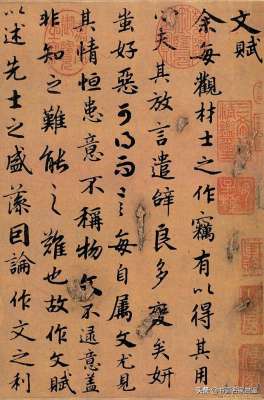 文賦
余每觀材士之作竊有以得其用
心夫其放言遣辝良多變矣妍
蚩好惡可得而言每自属文尤見
其情恒患意不稱物文不逮意盖
非知之難能之難也故作文賦
以述先士之盛藻因論作文之利